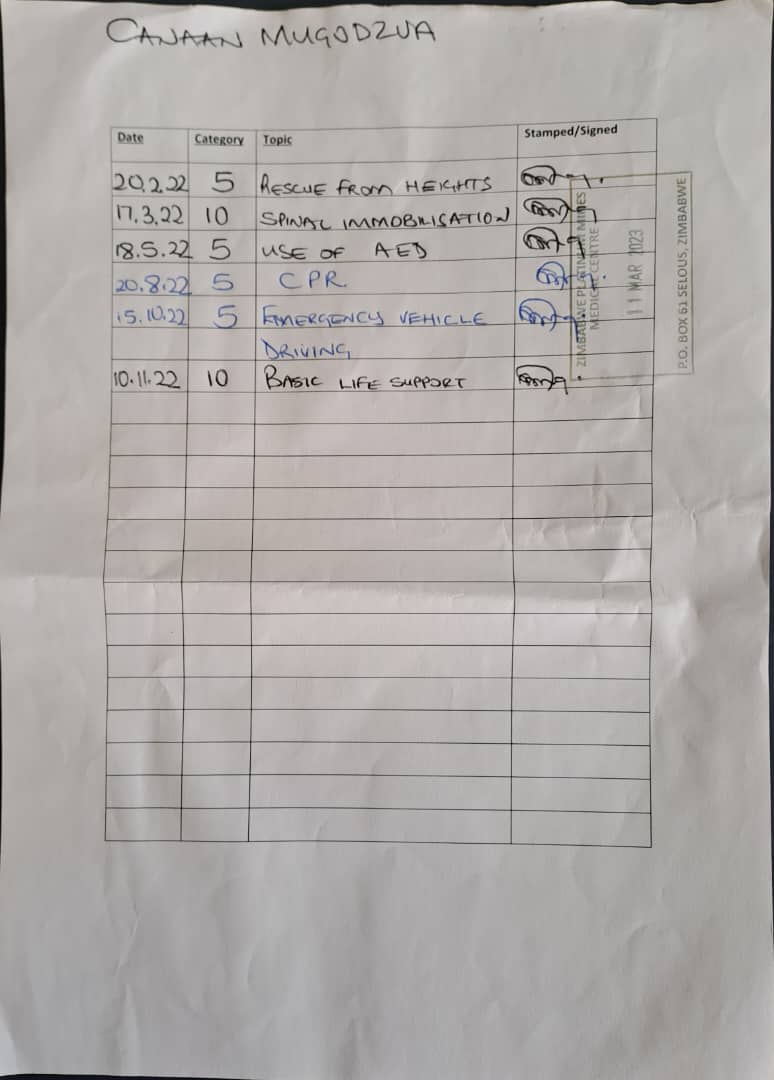 CANAAN MUGODZVA
Date Category Topic Stamped/Signed
20.2.22 5 RESCUE FROM HEIGHTS
17.3.22 10 SPINAL IMMOBILISATION
18.5.22 5 USE OF AED
20.8.22 5 CPR
15.10.22 5 EMERGENCY VEHICLE
DRIVING
10.11.22 10 BASIC LIFE SUPPORT
ZIMBABWE PLATINUM MINES
MEDICAL CENTRE
11 MAR 2023
P.O. BOX 61 SELOUS, ZIMBABWE